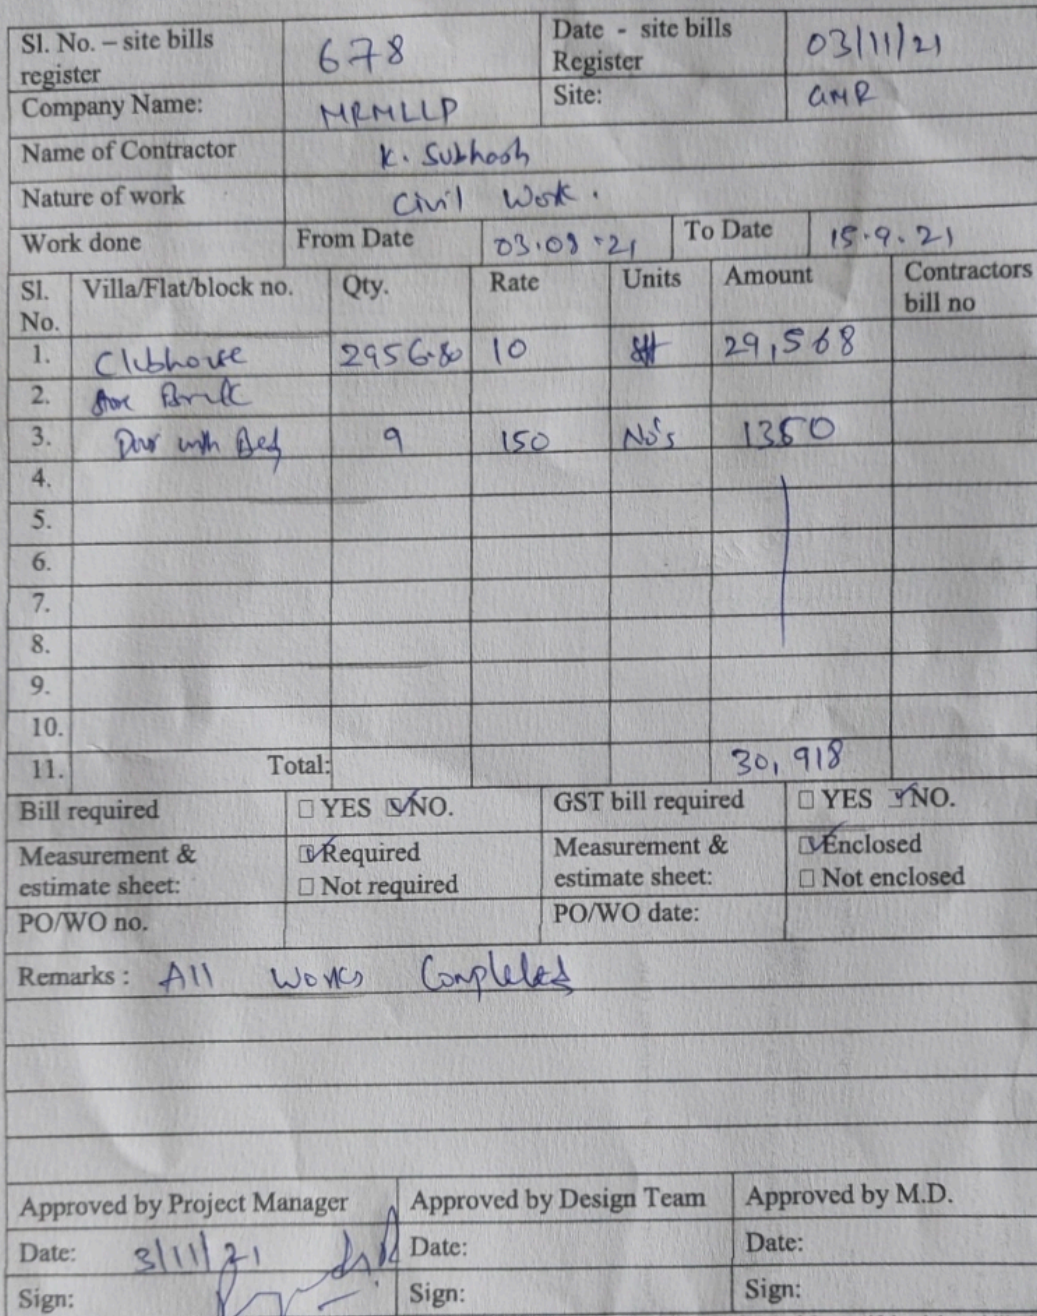 Sl. No. – site bills register 678 Date - site bills Register 03/11/21
Company Name: MRMLLP Site: GMR
Name of Contractor K. Subhash
Nature of work Civil Work.
Work done From Date 03.09.21 To Date 15.9.21
Sl. No. Villa/Flat/block no. Qty. Rate Units Amount Contractors bill no
1. Clubhouse 2956.80 10 sft 29,568
2.
3. Door with Bed 9 150 No's 1350
4.
5.
6.
7.
8.
9.
10.
11. Total: 30,918
Bill required ☐ YES ☑ NO. GST bill required ☐ YES ☑ NO.
Measurement & estimate sheet: ☑ Required ☐ Not required Measurement & estimate sheet: ☑ Enclosed ☐ Not enclosed
PO/WO no. PO/WO date:
Remarks : All Works Completed
Approved by Project Manager Approved by Design Team Approved by M.D.
Date: 3/11/21 Date: Date:
Sign: Sign: Sign: